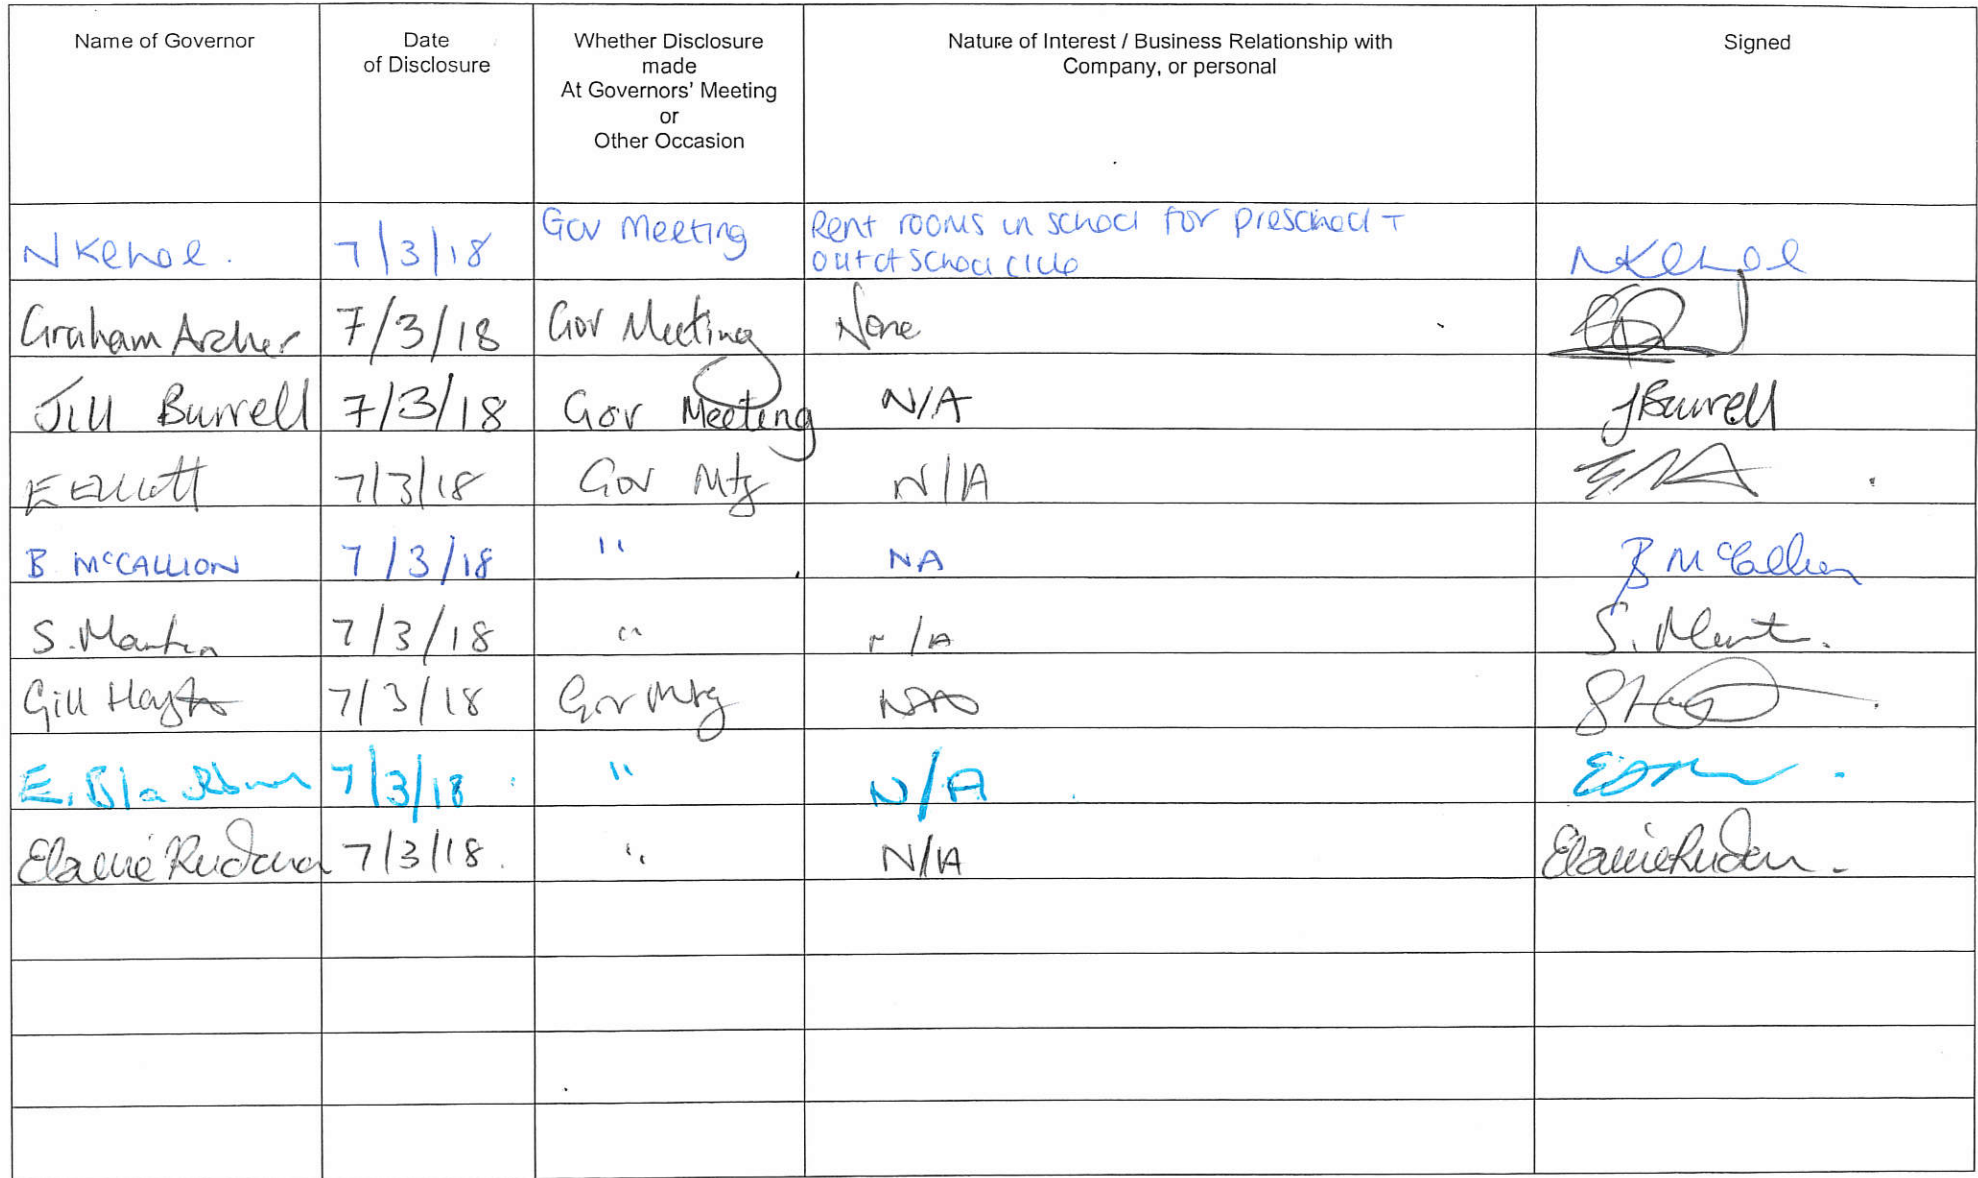 Name of Governor
Date
of Disclosure
Whether Disclosure
made
At Governors' Meeting
or
Other Occasion
Nature of Interest / Business Relationship with
Company, or personal
Signed
N Kehoe. 7/3/18 Gov Meeting Rent rooms in school for preschool + NKehoe
out of school club
Graham Archer 7/3/18 Gov Meeting None
Jill Burrell 7/3/18 Gov Meeting N/A JBurrell
E Elliott 7/3/18 Gov Mtg N/A
B McCALLION 7/3/18 " NA B McCallion
S. 7/3/18 " N/A S.
Gill 7/3/18 Gov Mtg
E. 7/3/18 " N/A
Elaine 7/3/18. " N/A Elaine